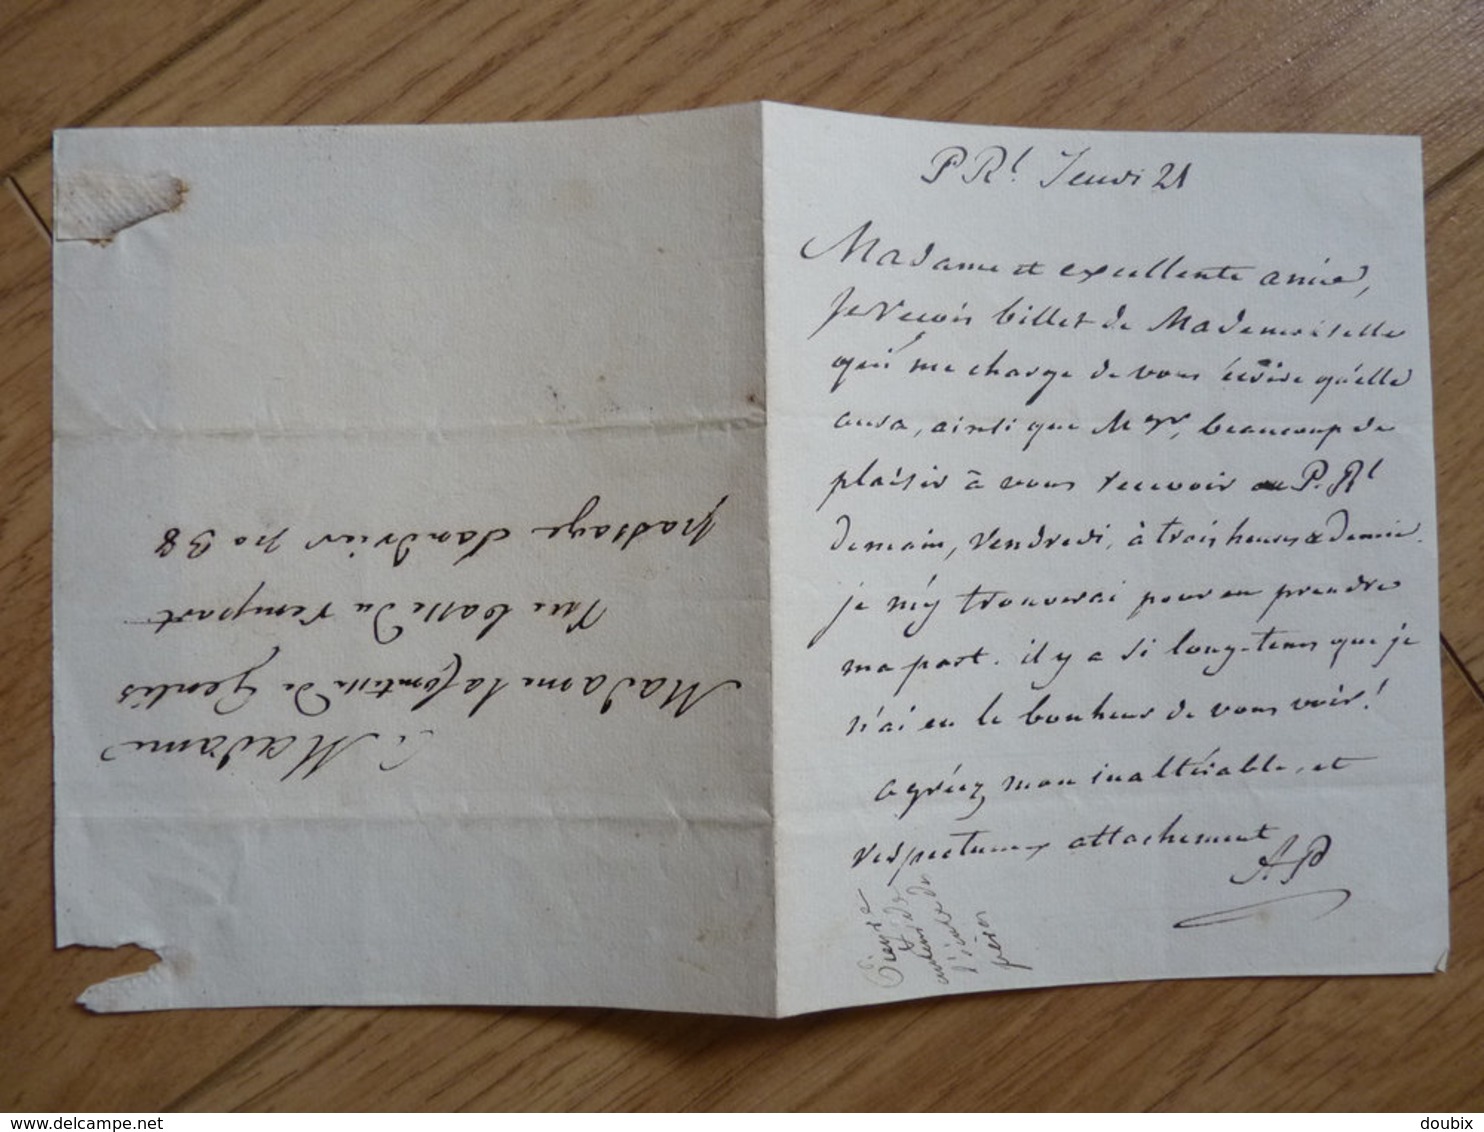 P Rl. Jeudi 21
Madame et excellente amie,
je recois billet de Mademoiselle
qui me charge de vous écrire qu'elle
aura, ainsi que Mgr, beaucoup de
plaisir à vous recevoir au P. Rl
demain, vendredi, à trois heures & demie.
je m'y trouverai pour en prendre
ma part. il y a si long-tems que je
n'ai eu le bonheur de vous voir!
agréez mon inaltérable, et
respectueux attachement
AP
Pieyre
aide
l'école de
à Madame
Madame la comtesse de Genlis
rue basse du rempart
passage Sandrier no 38
delcampe.net
doubix